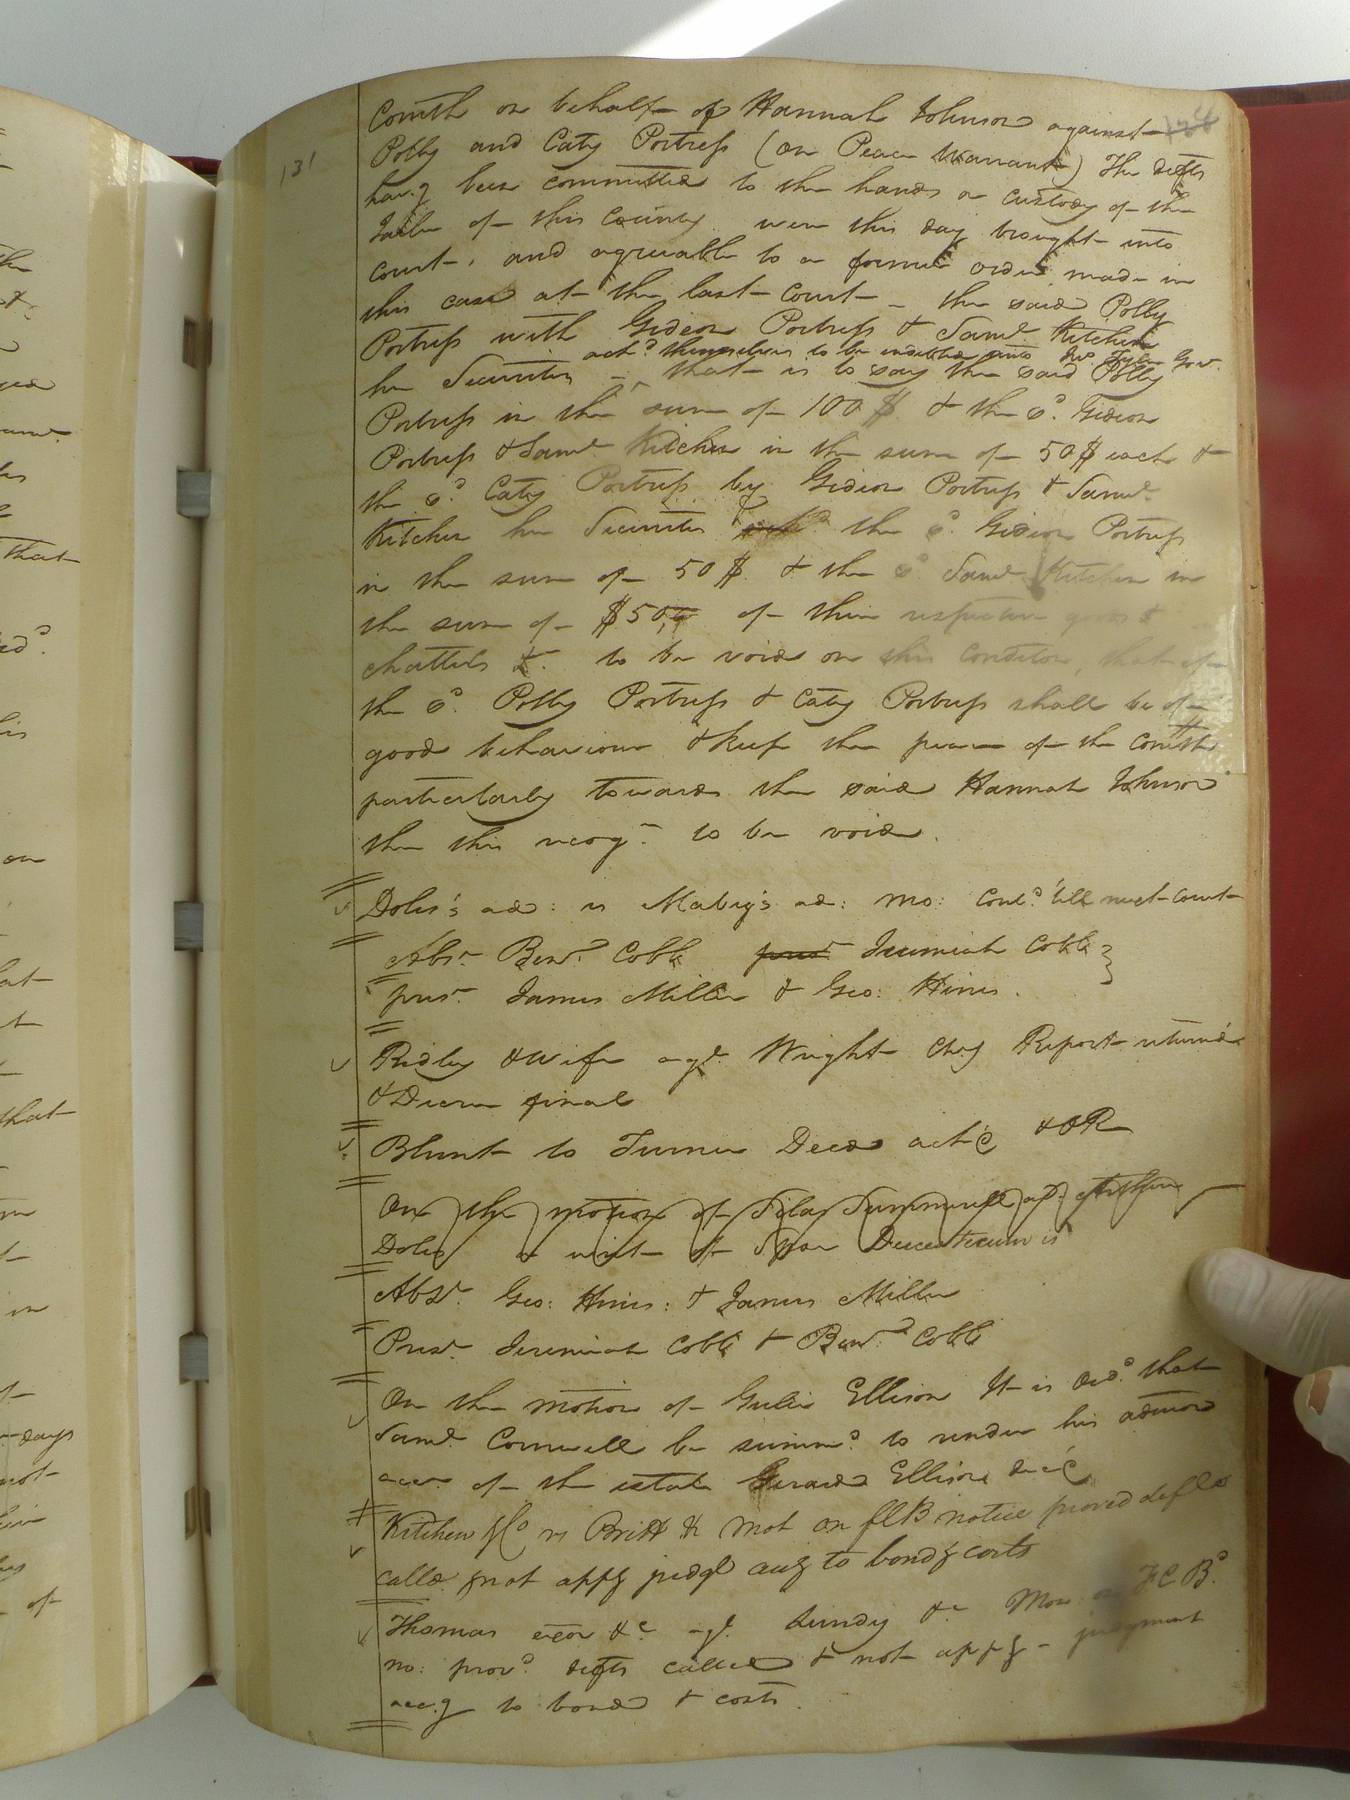 131
Comth on behalf of Hannah Johnson against
Polly and Caty Portress (on Peace Warrant) The defts
hav.g been committed to the hands or custody of the
Jailer of this County were this day brought into
court, and agreeable to a former order made in
this case at the last Court – the said Polly
Portress with Gideon Portress & Saml. Kitchen
ackd. themselves to be indebted unto Jno. Tyler Gov.
her Securities – that is to say the said Polly
Portress in the sum of 100 $ & the sd. Gideon
Portress & Saml. Kitchen in the sum of 50 $ each &
the sd. Caty Portress by Gideon Portress & Saml.
Kitchen her Securities the sd. Gideon Portress
in the sum of 50 $. & the sd. Saml. Kitchen in
the sum of $50,, of their respective goods &
chattels &c. to be void on this condition, that if
the sd. Polly Portress & Caty Portress shall be of
good behaviour & keep the peace of the Comth
particularly towards the said Hannah Johnson
then this recogce. to be void.
Doles's ad: vs Mabry's ad: mo: Contd. 'till next Court
Abst. Benj. Cobb prest Jeremiah Cobb
prest. James Miller & Geo: Hines.
Ridley & Wife agt. Wright Chy Report returnd
& Decree final
Blunt to Turner Deed ack'd & OR
On the motion of Silas Summerell
Doles a writ of
Abst. Geo: Hines: & James Miller
Prest. Jeremiah Cobb & Benj. Cobb
On the motion of Ellison It is Ord. that
Saml. Cornwell be summd. to render his admon
acct. of the estate Gerard Ellison dec'd
Kitchen & Co vs Britt &c Mot on FCB notice proved defts
called & not appg judgt accg to bond & costs
Thomas exor &c agt. Lundy &c Mon on F C Bd.
no: provd. defts called & not appg – judgment
acc.g to bond & costs.